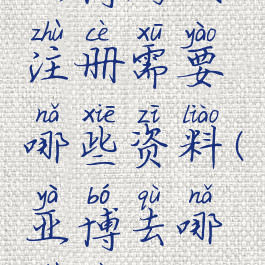 zhù cè xū yào
注册需要
nǎ xiē zī liào
哪些资料(
yà bó qù nǎ
亚博去哪